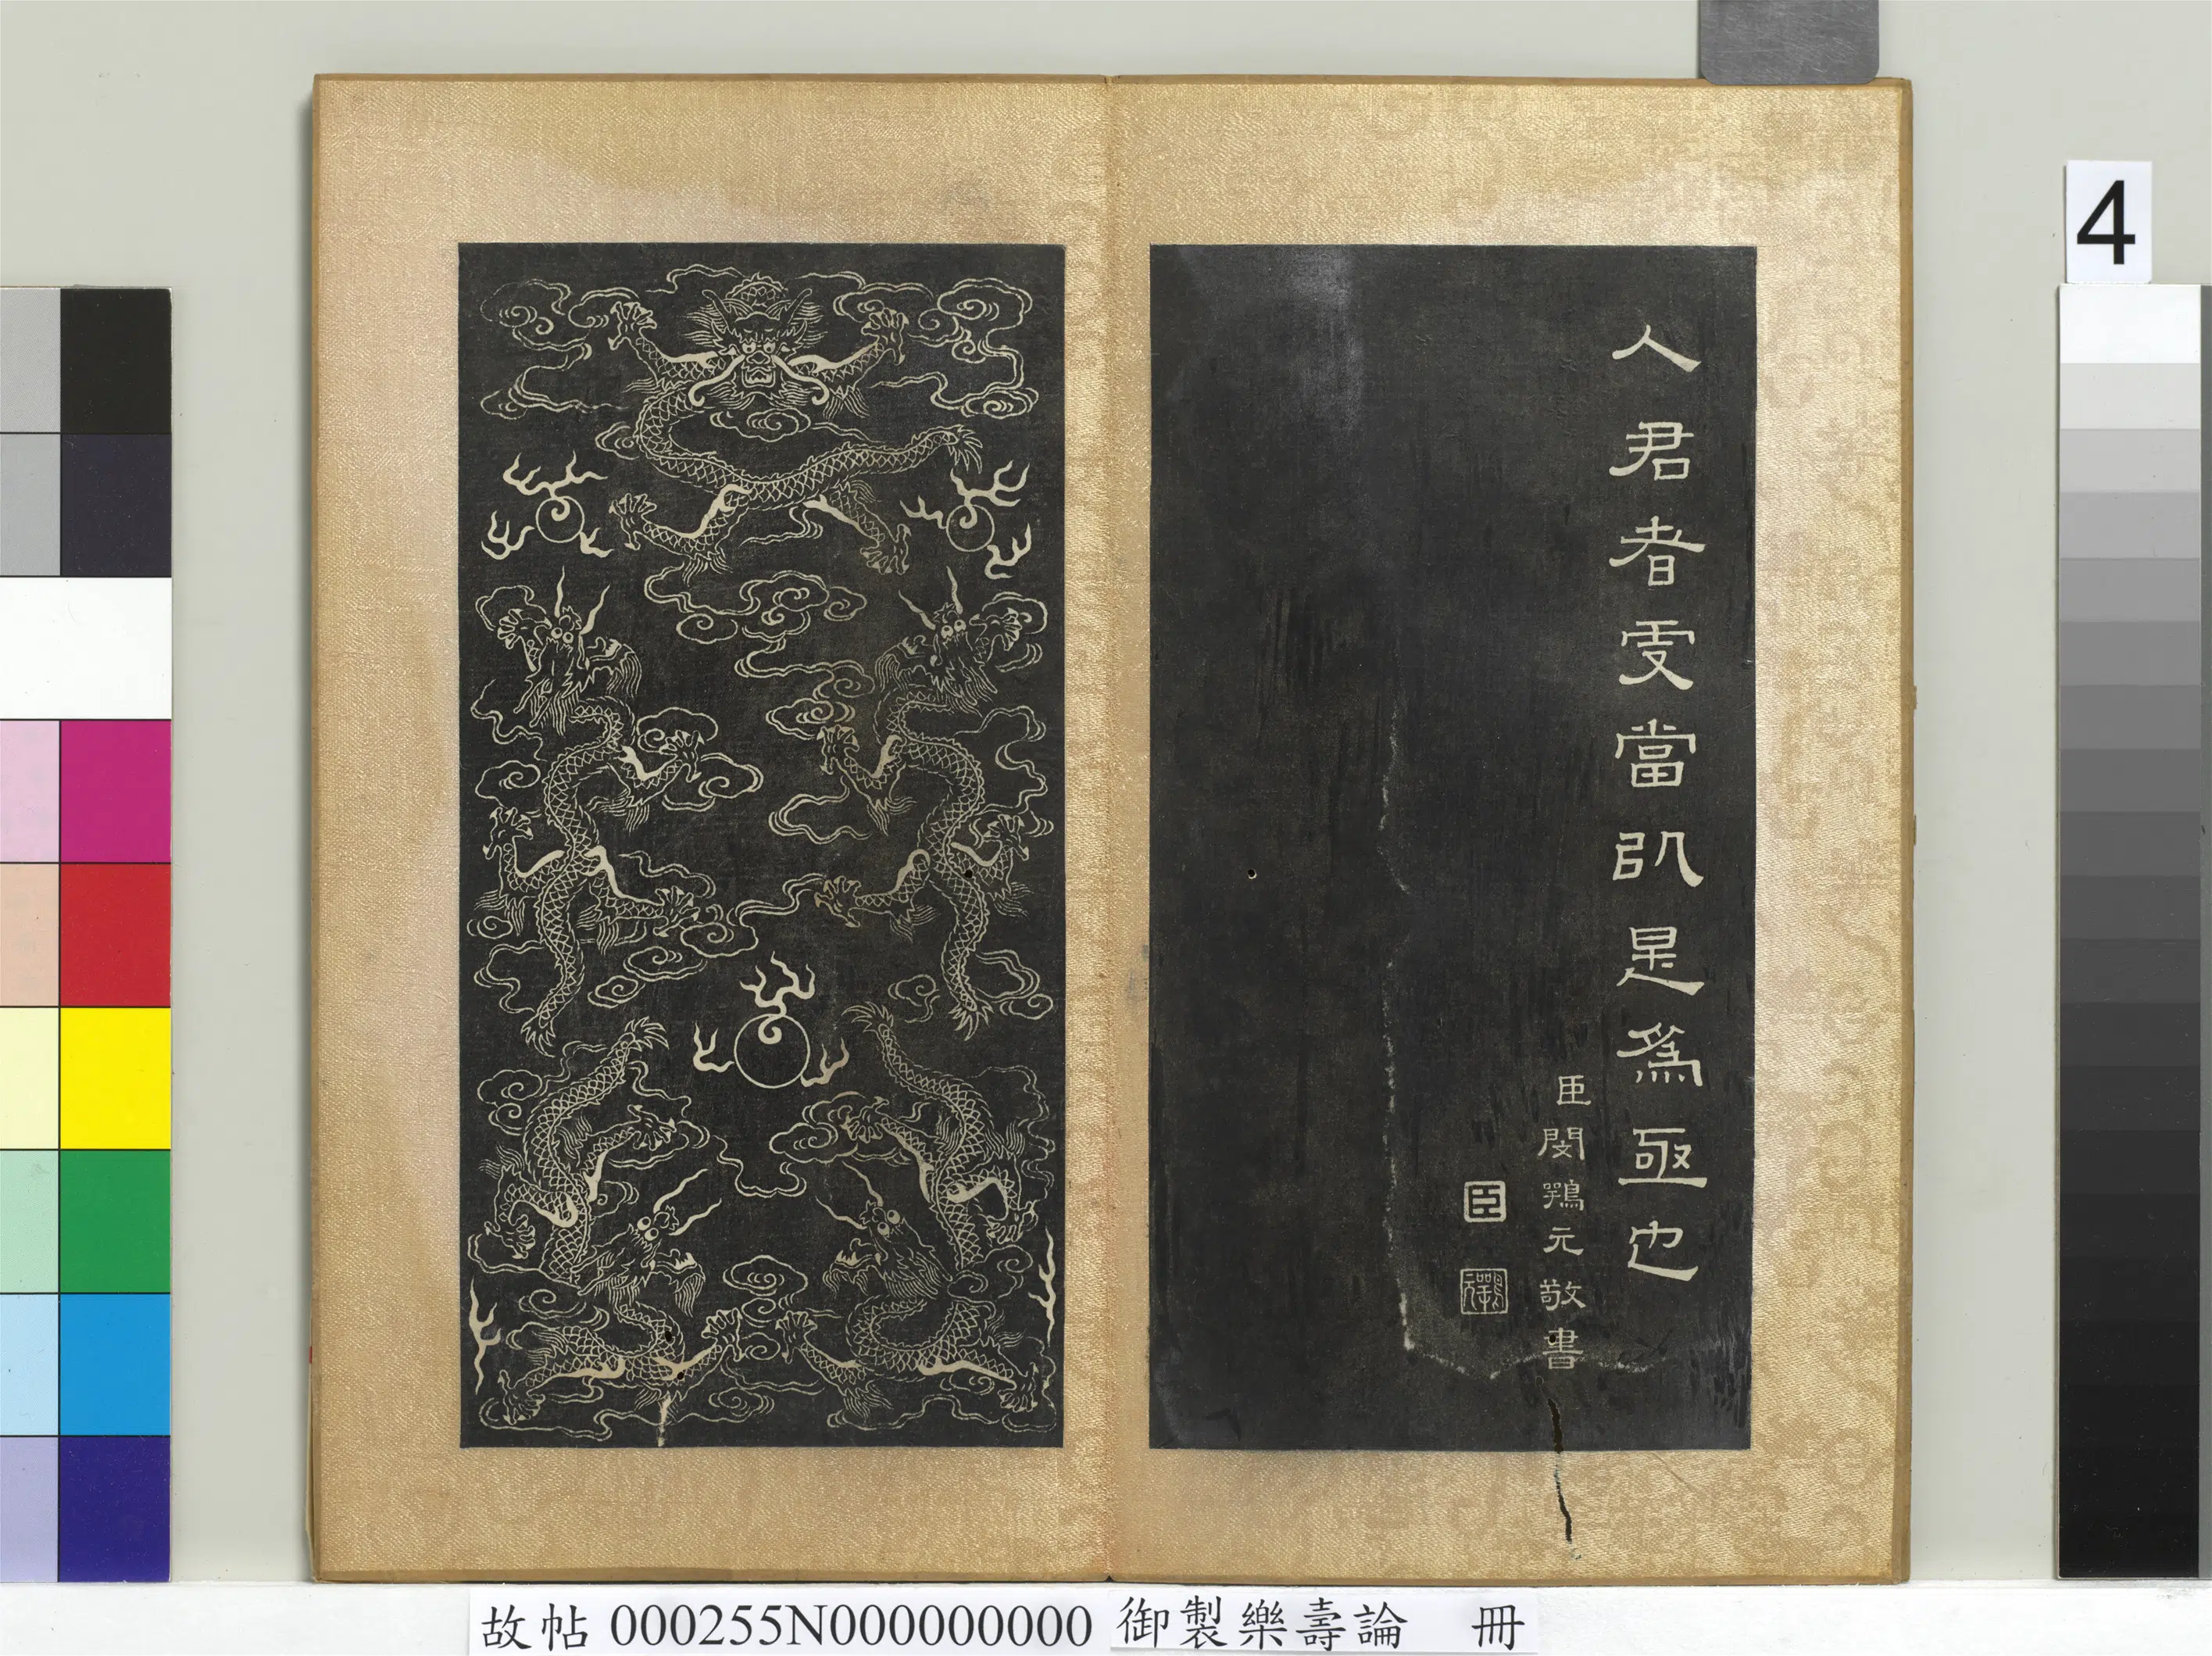 4
人君者更當㕥是為亟也
臣閔鶚元敬書
臣
鶚元
故帖 000255N000000000 御製樂壽論 冊